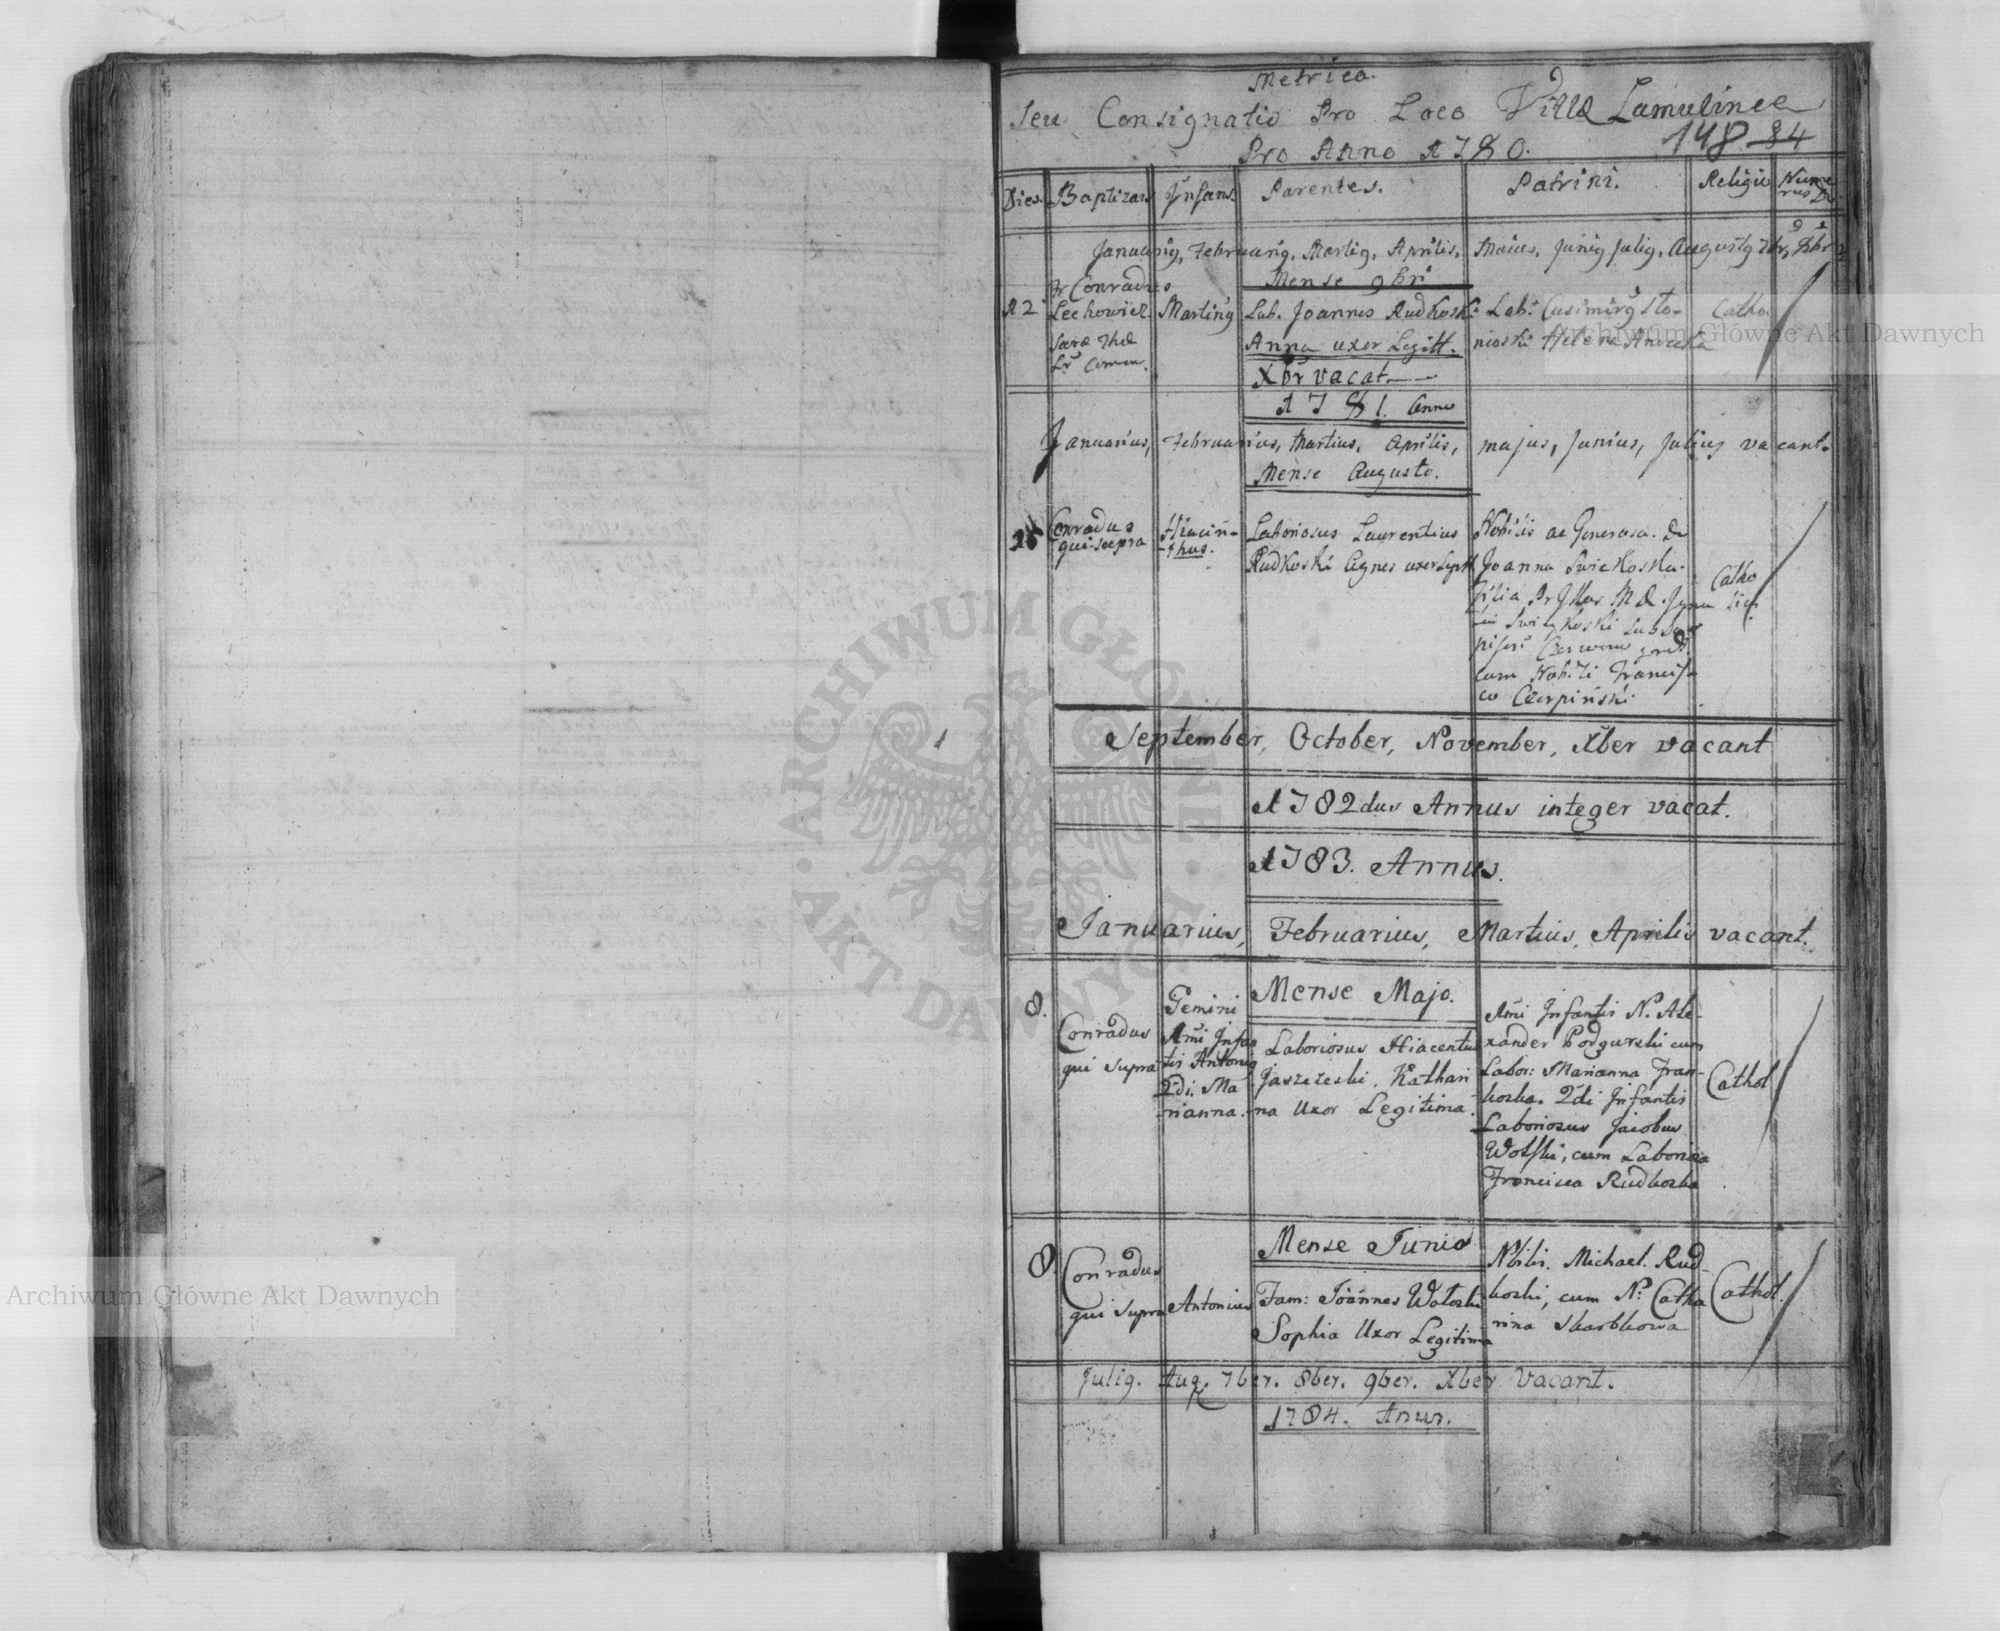 Metrica.
Seu Consignatio Pro Loco Villa
148 84
Pro Anno 1780.
Dies Baptizans Infans Parentes. Patrini. Religio Nume
rus
Januarig, Februarig, Martig, Aprilis, Maius, Junig Julig, Augustg
Mense 9bri
12 Fr Conradus
Lechowicz Marting Lab. Joannes Rudkoski Lab: Casimirg Sto- Catho.
Anna uxor Legitt. nioski Helena
Xbr vacat
1781. Anno
Januarius, Februarius, Martius, Aprilis, majus, Junius, Julius vacant.
Mense Augusto.
15 Conradus Hiacin- Laboriosus Laurentius Nobilis ac Generosa
qui supra thus. Rudkoski Agnes uxor Joanna Swiekoska
filia Catho
lic
cum Nobili Francis-
co Czerpiński
September, October, November, Xber vacant
1782dus Annus integer vacat.
1783. Annus.
Januarius, Februarius, Martius, Aprilis vacant.
Mense Majo.
8. Conradus
qui supra
Gemini
1mi Infan
tis Antonig
2di. Ma
rianna.
Laboriosus Hiacentus
Jaszczeski, Kathari
na Uxor Legitima.
1mi Infantis N. Ale-
xander Podgurski cum
Labor: Marianna Fran-
koska. 2di Infantis
Laboriosus Jacobus
Wolski, cum Laboriosa
Francisca Rudkoska
Cathol
Mense Junio
8. Conradus
qui supra Antonius
Fam: Joannes Wotoski
Sophia Uxor Legitima
Nbilis. Michael. Rud
koski, cum N: Catha
rina Skarbkowa
Cathol.
Julig. Aug. 7ber. 8ber. 9ber. Xber Vacant.
1784. Annus.
ARCHIWUM GŁÓWNE AKT DAWNYCH
Archiwum Główne Akt Dawnych
Archiwum Główne Akt Dawnych